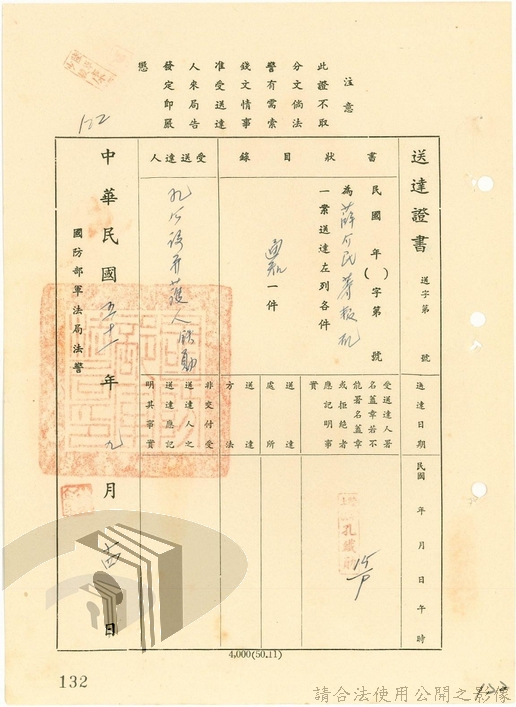 送達證書
送字第 號
民國 年( )字第 號
為薛介民等叛亂
一案送達左列各件
書狀目錄
通知一件
受送達人
孔公設辯護人
注意
此證不取
分文倘法
警有需索
錢文情事
准受送達
人來局告
發定即嚴
懲
送達日期
民國 年 月 日 午 時
受送達人署
名蓋章若不
能署名蓋章
或拒絕者
應記明事
實
送達處所
送達方法
非交付受
送達人之
送達應記
明其事實
中華民國五十一年九月十四日
國防部軍法局法警
4,000(50.11)
122
132
請合法使用公開之影像